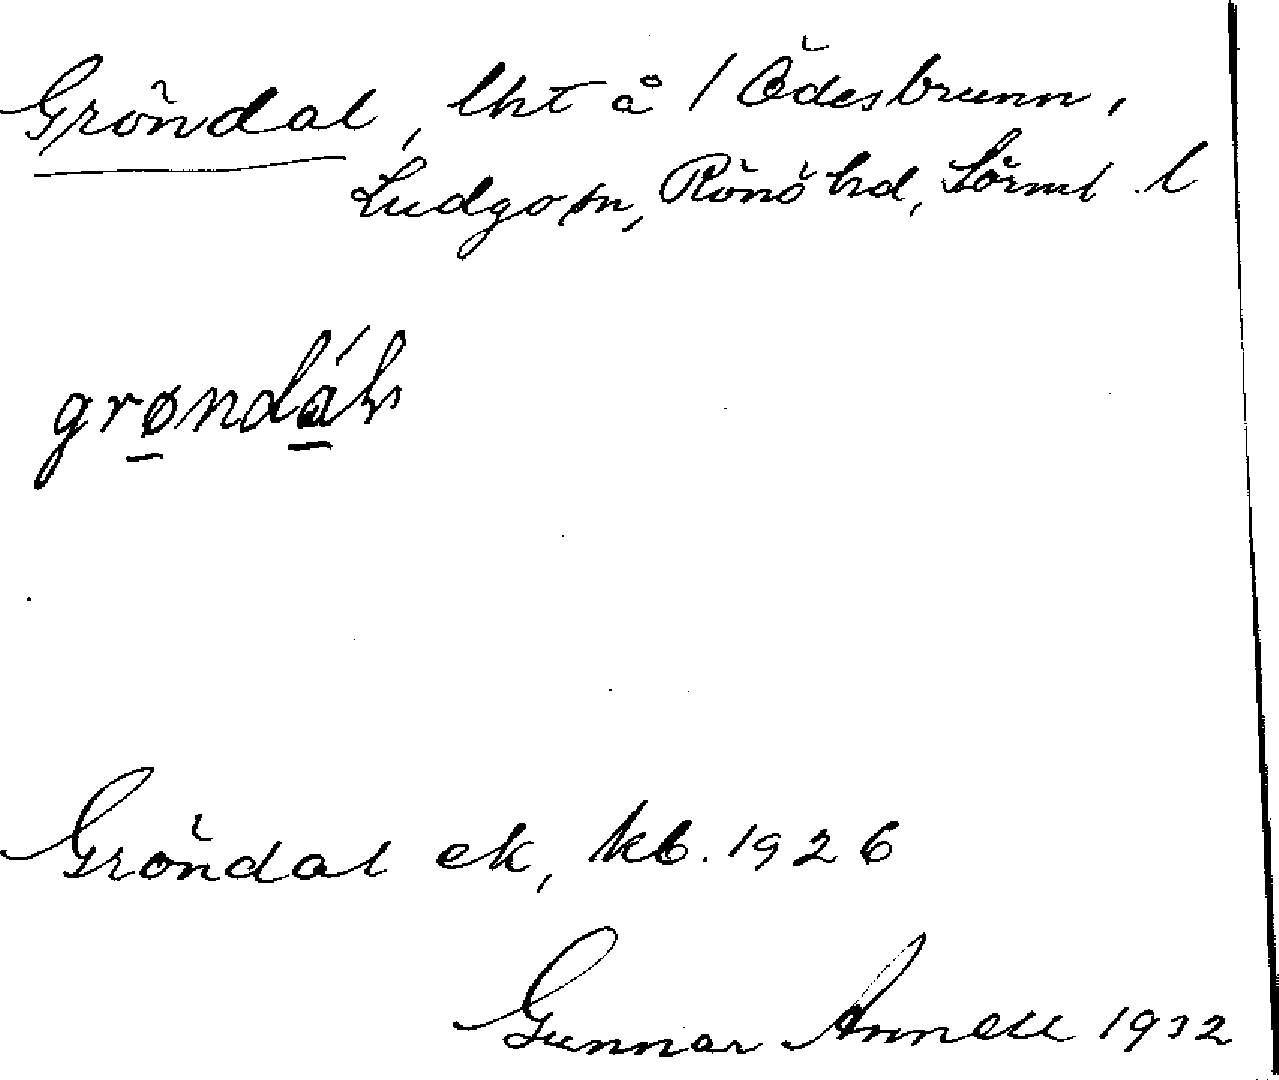 Gröndal, lht å / Ödesbrunn,
Ludgo sn, Rönö hd, Sörml. l
grøndál
Gröndal ek, kb. 1926
Gunnar Annell 1932